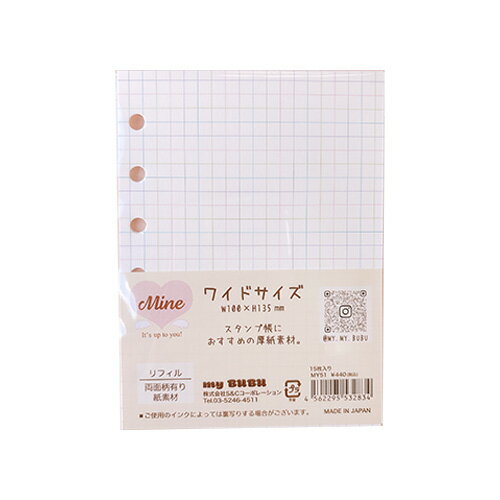 Mine
It's up to you!
ワイドサイズ
W100×H135mm
スタンプ帳に
おすすめの厚紙素材。
@MY.MY.BUBU
リフィル
両面柄有り
紙素材
my BUBU
株式会社S&Cコーポレーション
Tel.03-5246-4511
15枚入り
MY51 ¥440(税込)
4 562295 532834
MADE IN JAPAN
■ご使用のインクによっては裏写りする場合がございます。